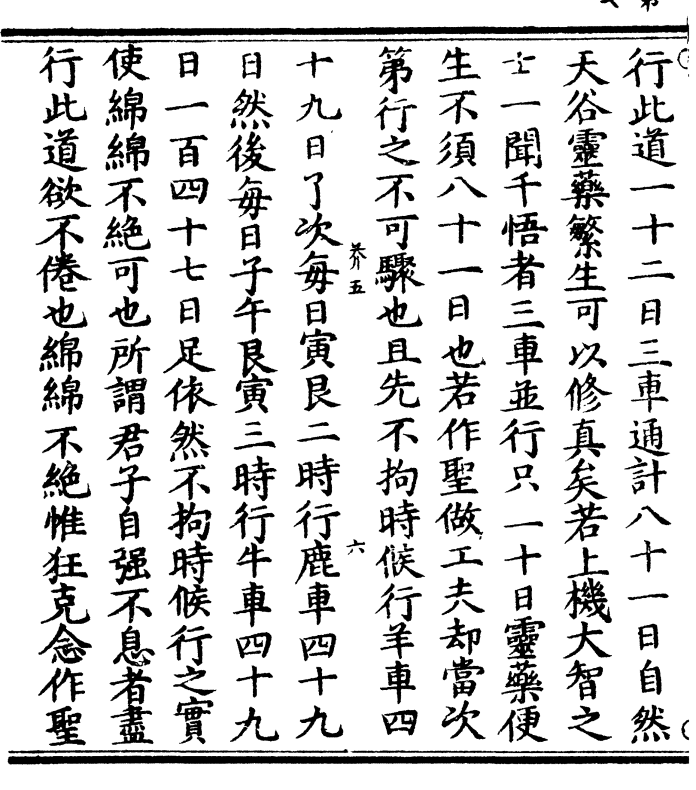 行此道一十二日三車通計八十一日自然
天谷靈藥繁生可以修真矣若上機大智之
士一聞千悟者三車並行只一十日靈藥便
生不須八十一日也若作聖做工夫却當次
第行之不可驟也且先不拘時候行羊車四
十九日了次每日寅艮二時行鹿車四十九
日然後每日子午艮寅三時行牛車四十九
日一百四十七日足依然不拘時候行之實
使綿綿不絕可也所謂君子自强不息者盡
行此道欲不倦也綿綿不絕惟狂克念作聖
五
六